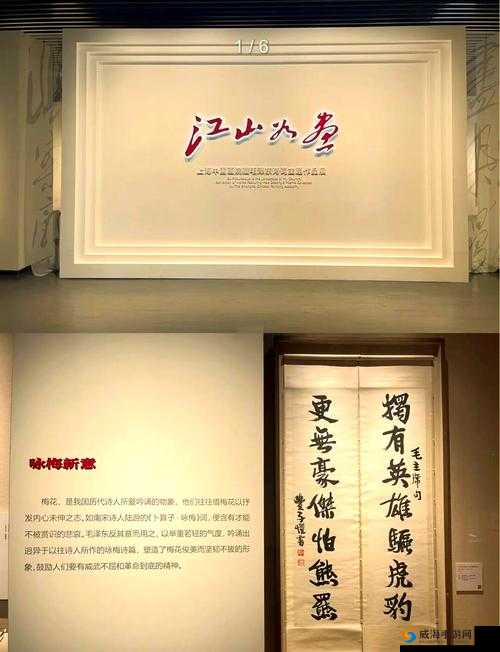 1/6
江山如画
上海中国画院藏毛泽东诗词主题作品展
咏梅新意
梅花，是我国历代诗人所爱吟诵的物象，他们往往借梅花以抒
发内心未伸之志，如南宋诗人陆游的《卜算子·咏梅》词，便含有才能
不被赏识的悲哀。毛泽东反其意而用之，以举重若轻的气度，吟诵出
迥异于以往诗人所作的咏梅诗篇，塑造了梅花俊美而坚韧不拔的形
象，鼓励人们要有威武不屈和革命到底的精神。
毛主席句
獨有英雄驅虎豹
更無豪傑怕熊羆
豐子愷書
威海手游网